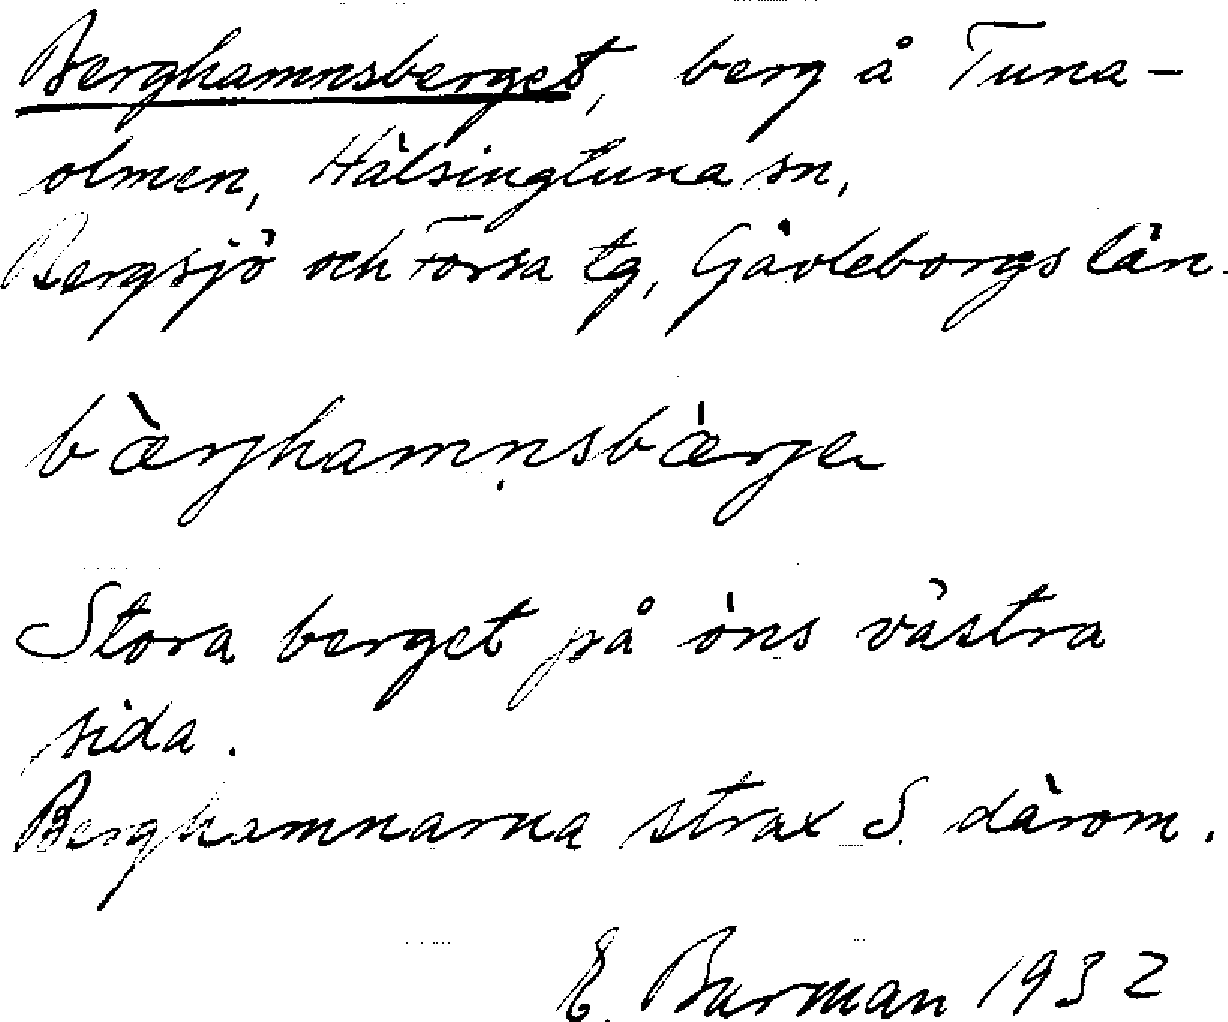 Berghamnsberget, berg å Tuna-
olmen, Hälsingtuna sn,
Bergsjö och Forsa tg, Gävleborgs län.
bæ̀rjhamnsbæ̀rje
Stora berget på öns västra
sida.
Berghamnarna strax S. därom.
E. Burman 1932